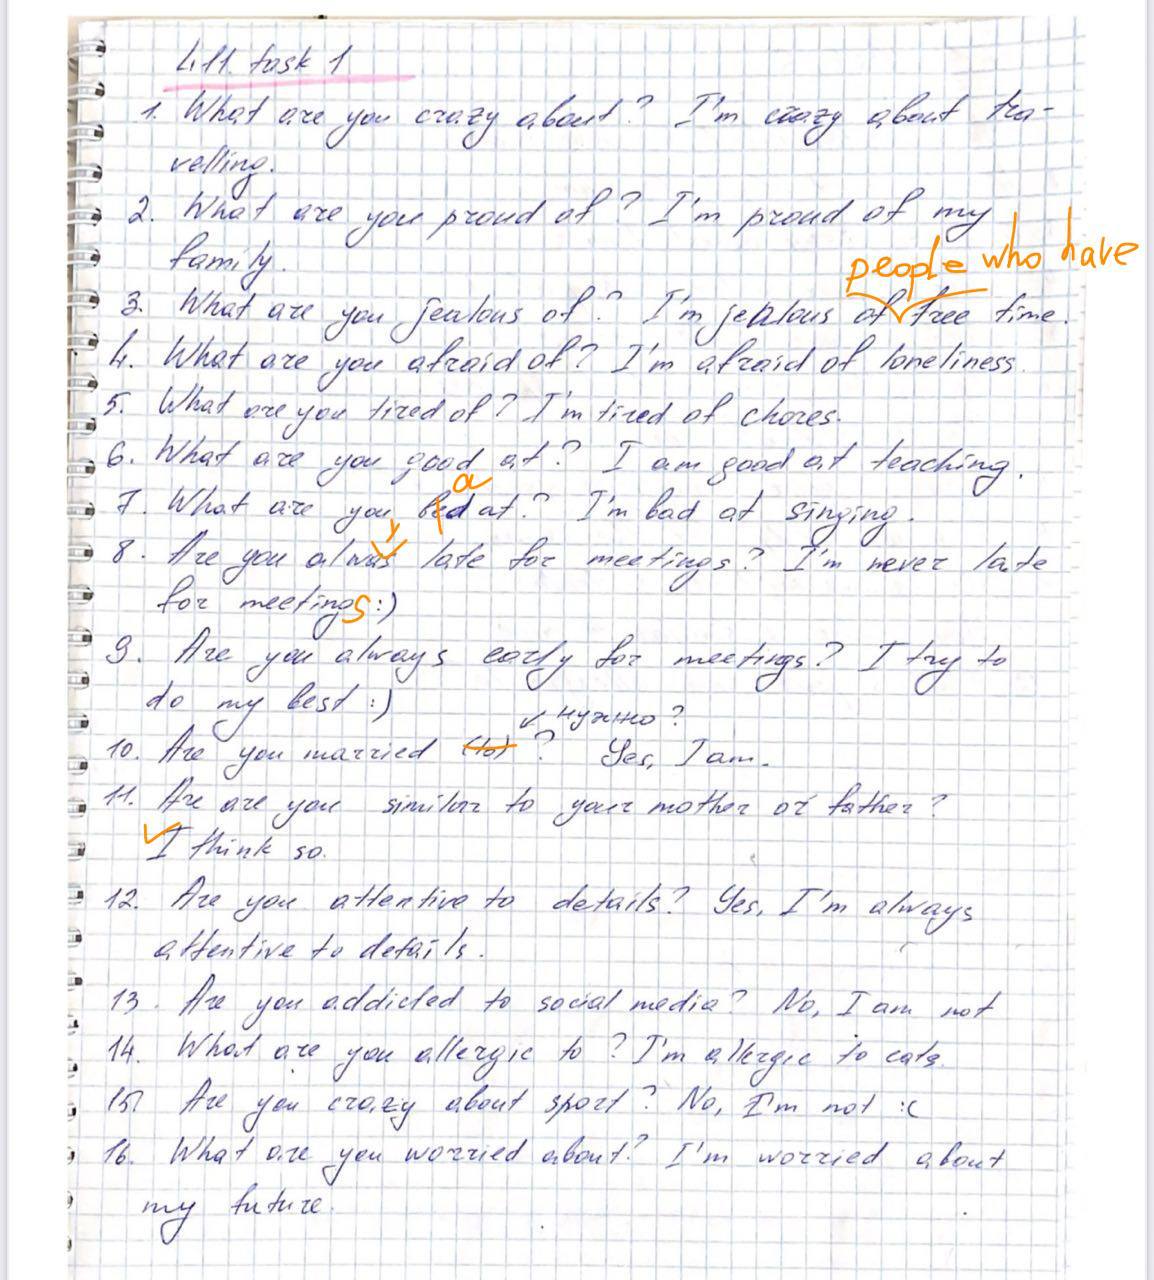 4.11. task 1
1. What are you crazy about? I'm crazy about tra-
velling.
2. What are you proud of? I'm proud of my
family.
people who have
3. What are you jealous of? I'm jealous of free time.
4. What are you afraid of? I'm afraid of loneliness.
5. What are you tired of? I'm tired of chores.
6. What are you good at? I am good at teaching.
a
7. What are you bed at? I'm bad at singing.
y
8. Are you alwas late for meetings? I'm never late
for meetings :)
9. Are you always early for meetings? I try to
do my best :)
нужно?
10. Are you married (to)? Yes, I am.
11. Are are you similar to your mother or father?
I think so.
12. Are you attentive to details? Yes, I'm always
attentive to details.
13. Are you addicted to social media? No, I am not
14. What are you allergic to? I'm allergic to cats.
15. Are you crazy about sport? No, I'm not :(
16. What are you worried about? I'm worried about
my future.